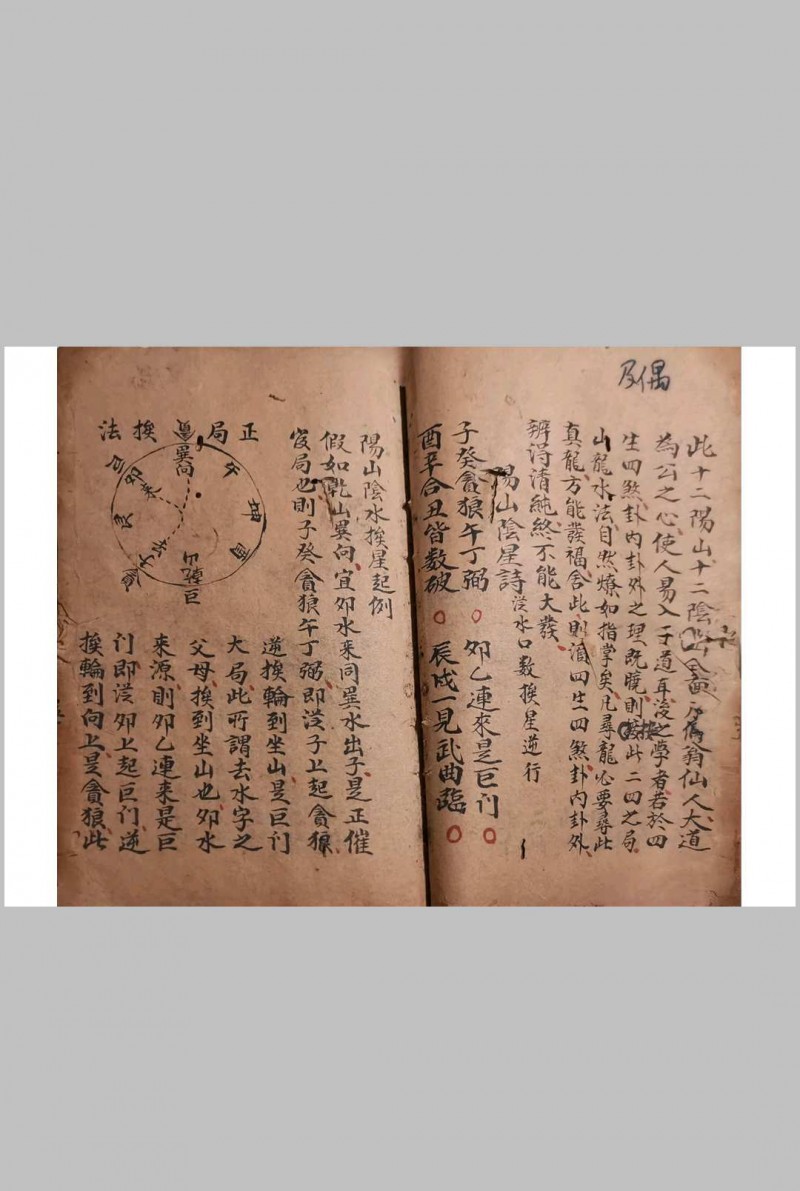 偶及
此十二陽山十二陰 仙人大道
為公之心使人易入于道耳後之學者若於四
生四煞卦內卦外之理既曉則 此二四之局
山龍水法自然燎如指掌矣凡尋龍必要尋此
真龍方能發福舍此則滴四生四煞卦內卦外
辨淂清純終不能大發
陽山陰星詩 從水口数挨星逆行
子癸貪狼午丁弼 卯乙連來是巨门
酉辛合丑皆数破 辰戍一見武曲臨
陽山陰水挨星起例
假如乾山巽向宜卯水来同巽水出子是正催
官局也則子癸貪狼午丁弼即從子上起貪狼
逆挨輪到坐山是巨门
大局此所謂去水字之
父母挨到坐山也卯水
來源則卯乙連来是巨
门即從卯上起巨门逆
挨輪到向上是貪狼此
正局 挨法
巽向
午
坤
酉
艮
卯水來
巨